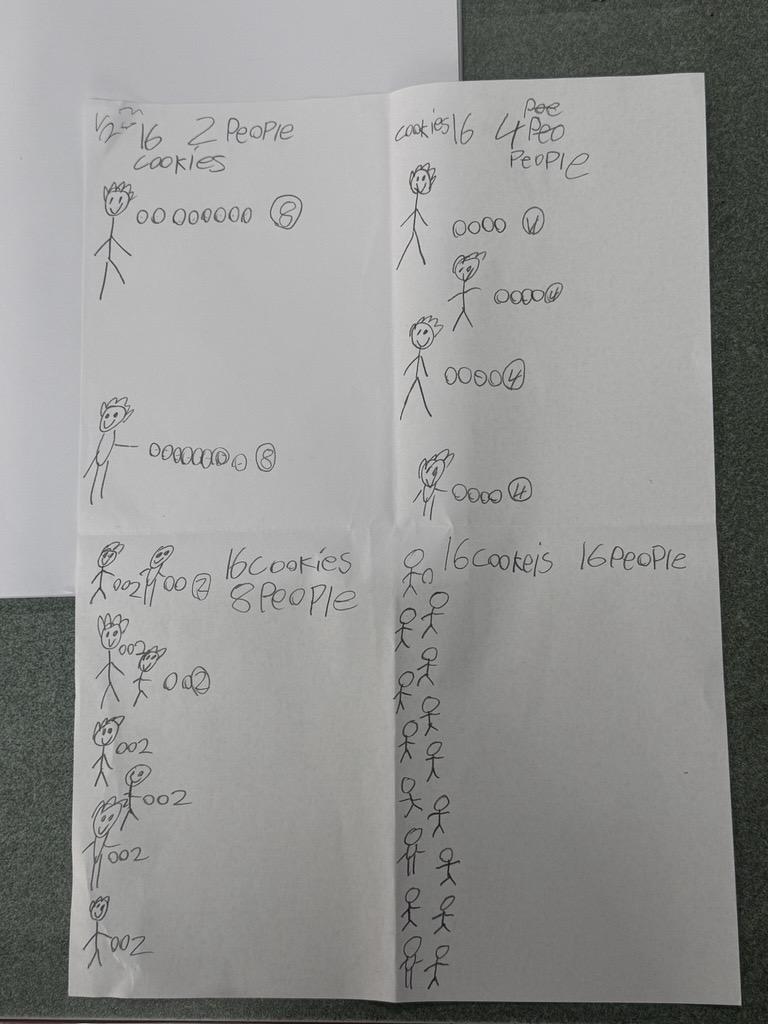 16 2 PEOPLE
COOKIES
8
8
COOKIES 16 4 PEO
PEOPLE
4
4
4
4
16 COOKIES
8 PEOPLE
2 2
2
2
2
2
2
2
16 COOKEIS 16 PEOPLE